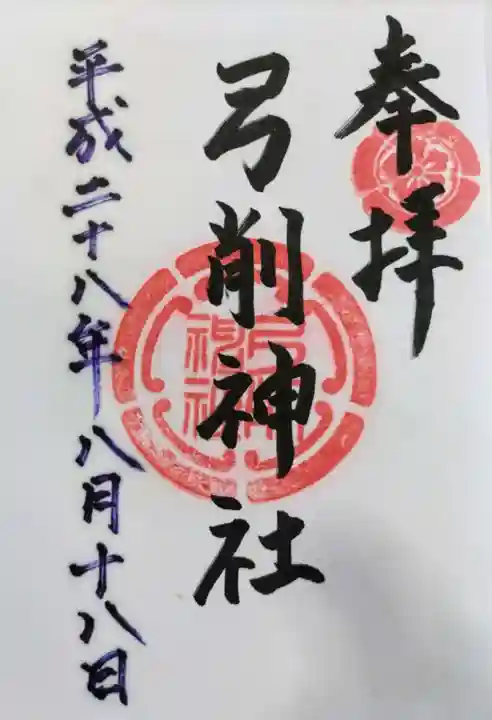 奉拝
弓削神社
平成二十八年八月十八日
弓削
神社